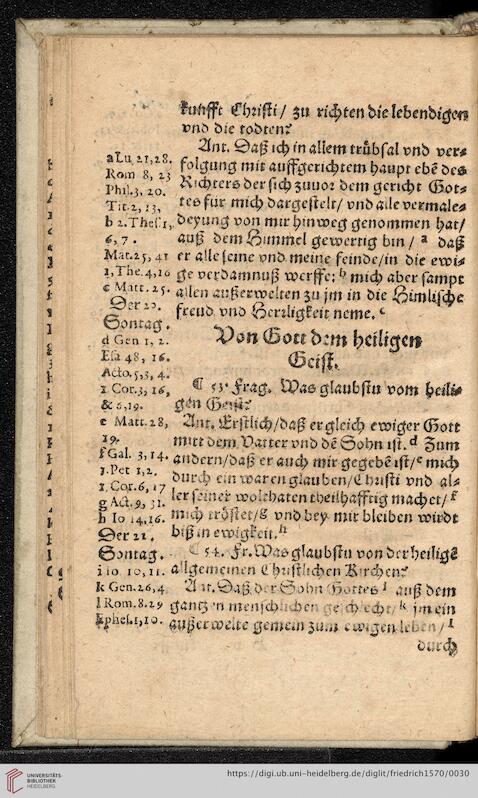 kunfft Christi/ zu richten die lebendigen
vnd die todten?
Ant. Daß ich in allem trübsal vnd ver=
folgung mit auffgerichtem haupt ebē des
Richters der sich zuuor dem gericht Got=
tes für mich dargestelt/ vnd alle vermale=
deyung von mir hinweg genommen hat/
auß dem Himmel gewertig bin/ a daß
er alle seine vnd meine feinde/in die ewi=
ge verdamnuß werffe: b mich aber sampt
allen außerwelten zu jm in die Himlische
freud vnd Herrligkeit neme. c
Von Gott dem heiligen
Geist.
53. Frag. Was glaubstu vom heili=
gen Geist?
Ant. Erstlich/daß er gleich ewiger Gott
mitt dem Vatter vnd dē Sohn ist. d Zum
andern/daß er auch mir gegebē ist/ e mich
durch ein waren glauben/Christi vnd al=
ler seiner wolthaten theilhafftig machet/ f
mich tröstet/ g vnd bey mir bleiben wirdt
biß in ewigkeit. h
54. Fr. Was glaubstu von der heiligē
allgemeinen Christlichen Kirchen?
Ant. Daß der Sohn Gottes i auß dem
gantzen menschlichen geschlecht/ k jm ein
außerwelte gemein zum ewigen leben/ l
durch
a Lu. 21,28.
Rom 8, 23
Phil.3, 20.
Tit.2, 13,
b 2.Thes.1,
6, 7.
Mat.25, 41
1,The.4,16
c Matt. 25.
Der 20.
Sontag.
d Gen 1, 2.
Esa 48, 16.
Acto.5,3, 4.
1 Cor.3, 16,
& 6,19.
e Matt.28,
19.
f Gal. 3,14.
1.Pet 1,2.
1.Cor.6, 17
g Act.9, 31.
h Io 14.16.
Der 21.
Sontag.
i Io. 10, 11.
k Gen.26,4
l Rom.8.29
Ephes.1,10.
UNIVERSITÄTS-
BIBLIOTHEK
HEIDELBERG
https://digi.ub.uni-heidelberg.de/diglit/friedrich1570/0030